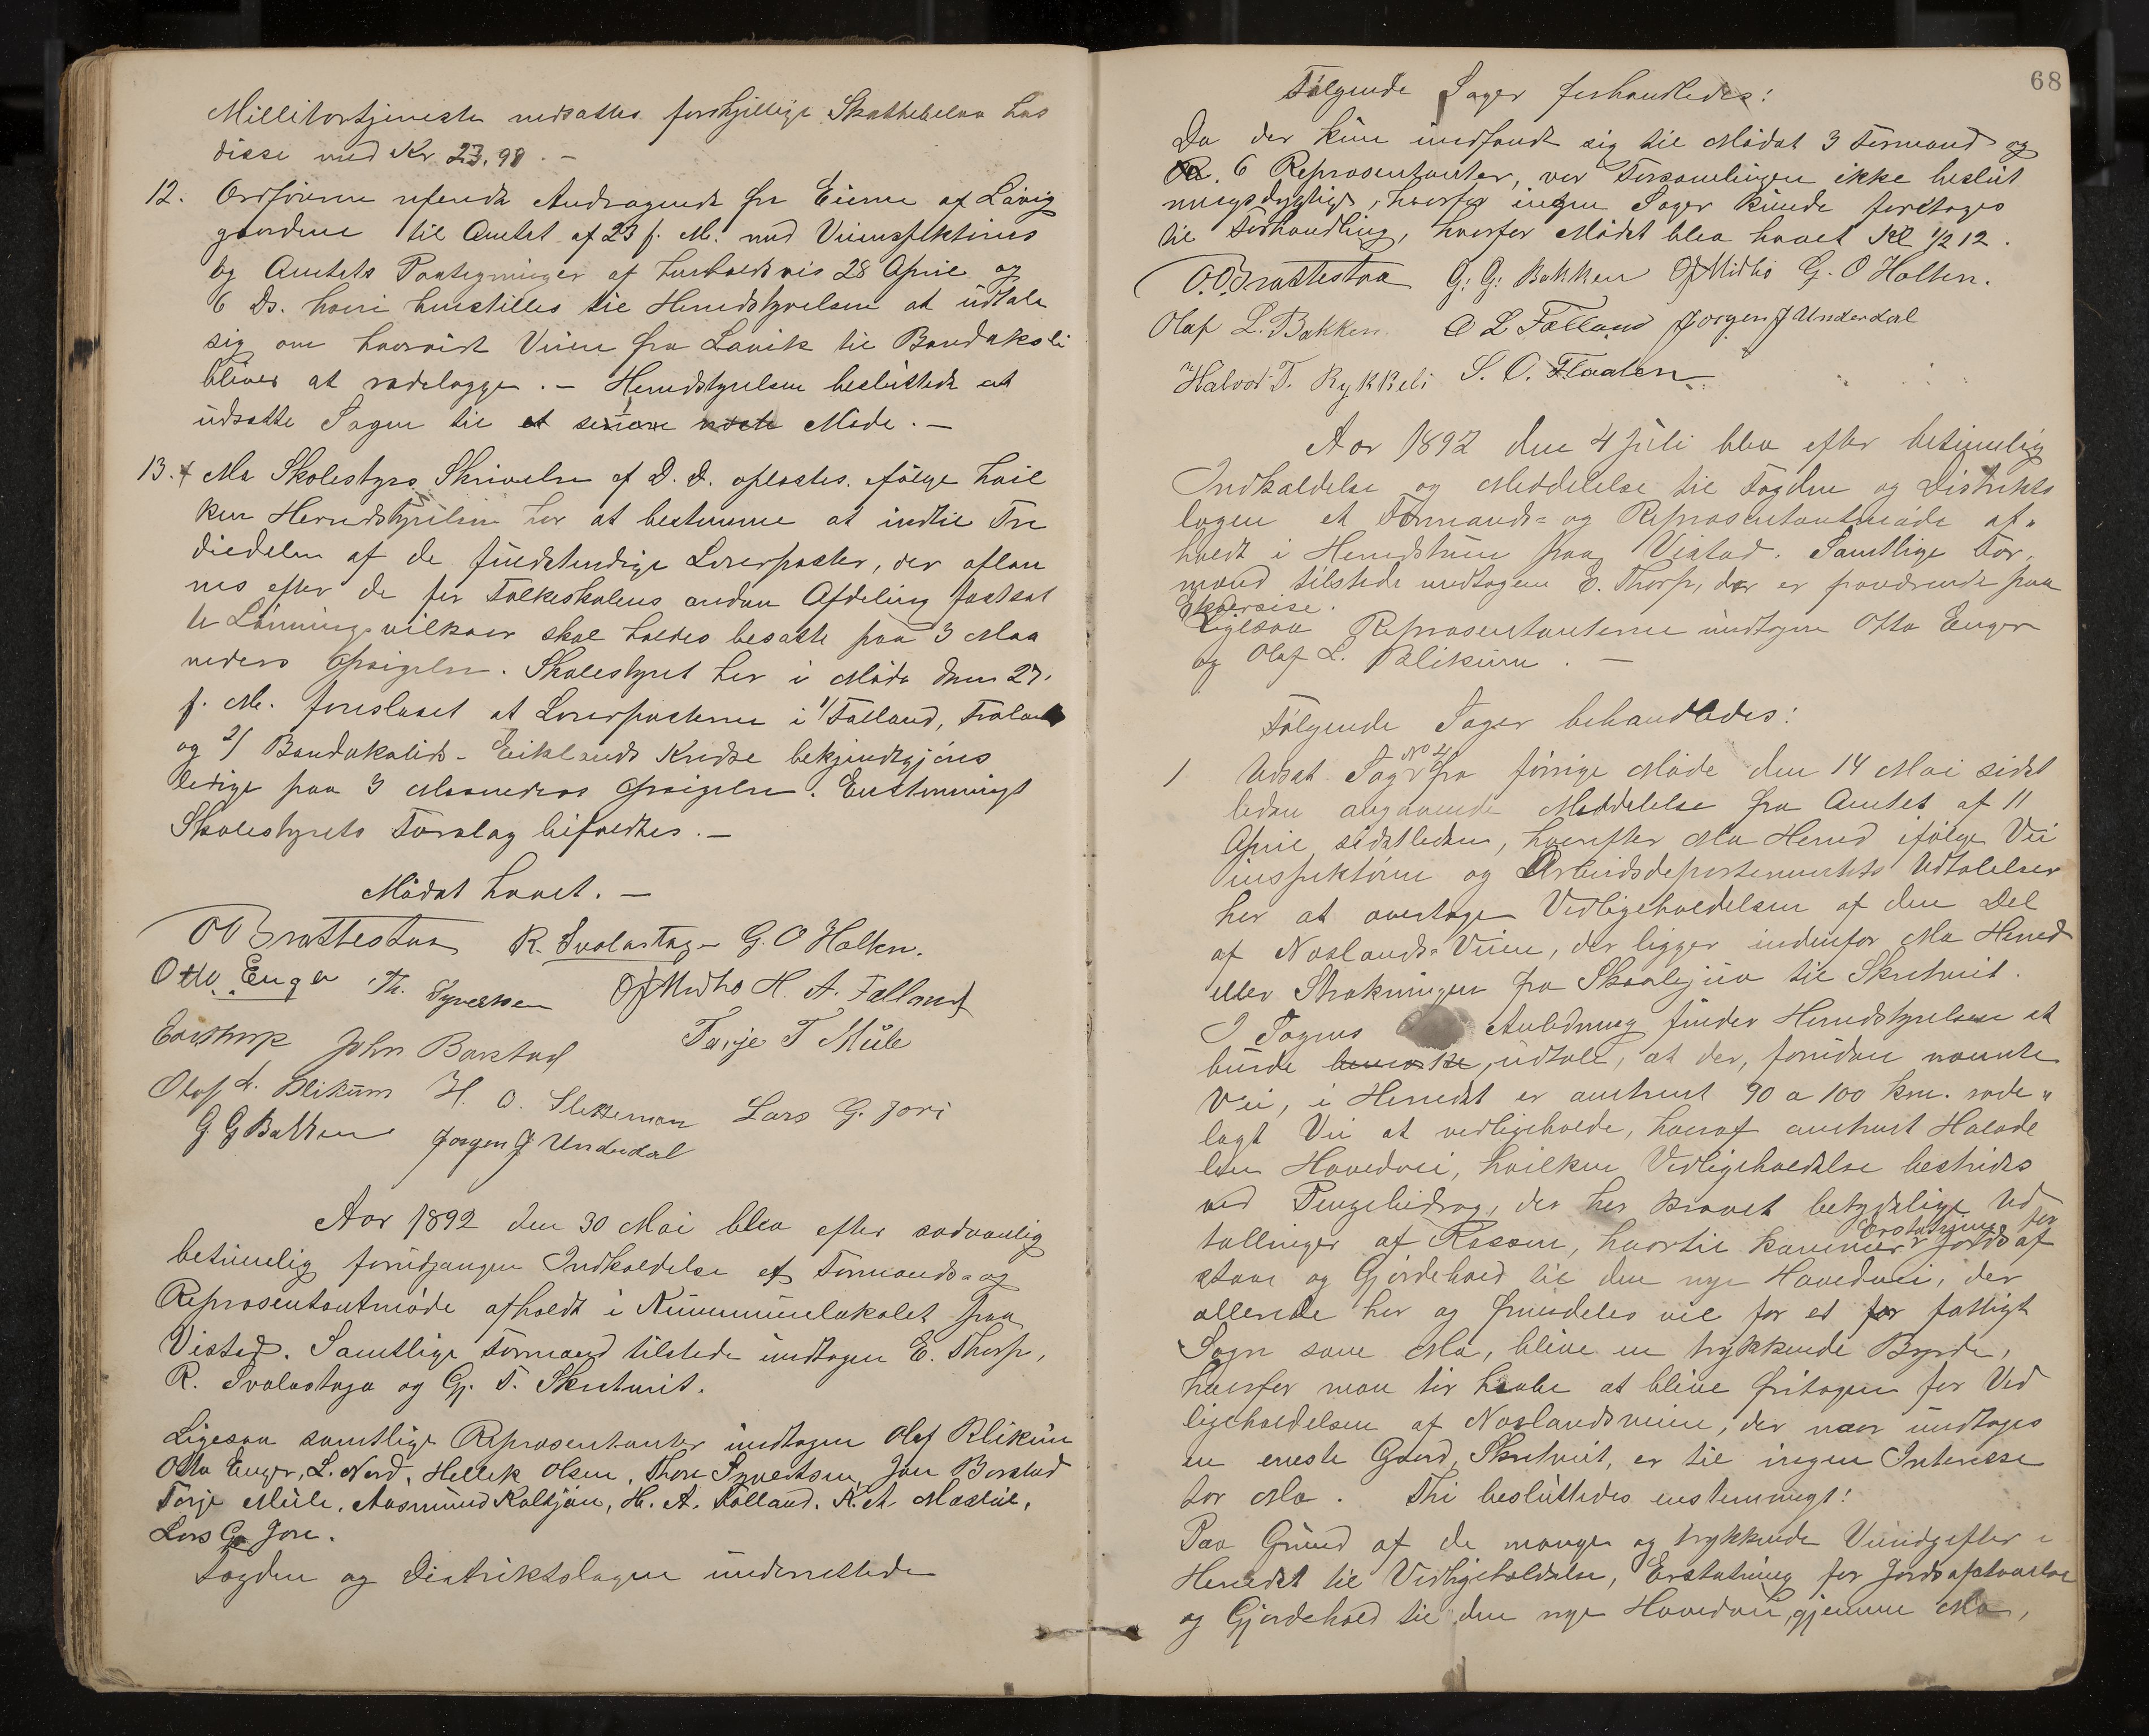 Millitærtjeneste nedsattes forskjellige Skattebeløb hos
disse med Kr. 23,98. –
12. Ordføreren refererede Andragende fra Eierne af Lavig
gaardene til Amtet af 23 f. M. med Veiinspektørens
og Amtets Paategninger af henholdsvis 28 April og
6 Ds. hvori henstilles til Herredstyrelsen at udtale
sig om hvorvidt Veien fra Lavik til Bandaksli
bliver at rodelægge. – Herredstyrelsen besluttede at
udsætte Sagen til et senere næste Møde. –
13. Mo Skolestyrs Skrivelse af D. D. oplæstes. ifølge hvil
ken Herredstyrelsen har at bestemme at indtil Tre
diedelen af de fuldstendige Lærerposter, der afløn
nes efter de for Folkeskolens anden Afdeling fastsat
te Lønningsvilkaar skal holdes besatte paa 3 Maa
neders Opsigelse. Skolestyret har i Møde den 27.
f. M. foreslaaet at Lærerposterne i 1/ Falland,
og 2/ Bandakslid- Eiklands Kredse bekjendtgjøres
ledige paa 3 Maaneders Opsigelse. Enstemmigt
Skolestyrets Forslag bifaldtes. –
Mødet hævet. –
O O Brattestaa R. Svalastoga G. O Holten.
Otto Enger Th. Syvertsen O J Midbø H. A. Falland
E Thorp John Barstad Tarje T Mule
Olaf L. Blikum H. O. Sletteman Lars G. Jori
G G Bakken Jørgen J Underdal
Aar 1892 den 30 Mai blev efter sedvanlig
betimelig forudgangen Indkaldelse et Formands- og
Repræsentantmøde afholdt i Kummunelokalet paa
Vistad. Samtlige Formænd tilstede undtagen E. Thorp,
R. Svalastoga og Gj. T. Skretveit.
Ligesaa samtlige Repræsentanter undtagen Olaf Blikum
Otto Enger, L. Nord, Hellek Olsen, Thore Syvertsen, Jon Barstad
Tarje Mule, Aasmund Kaltjøn, H. A. Falland, K. A.
Lars G. Jore.
Fogden og Distriktslægen underrettede
68
Følgende Sager forhandledes:
Da der kun indfandt sig til Mødet 3 Formænd og
6 Repræsentanter, var Forsamlingen ikke beslut
ningsdygtige, hvorfor ingen Sager kunde foretages
til Forhandling, hvorfor Mødet blev hævet Kl 1/2 12.
O. O. Brattestaa G. G. Bakken O J Midbø G. O Holten.
Olaf L. Bakken. O L Fælland Jørgen J Underdal
Halvor T. Rykkeli S. O. Flaaten
Aar 1892 den 4 Juli blev efter betimelig
Indkaldelse og Meddelelse til Fogden og Distrikts
lægen et Formands- og Repræsentantmøde af-
holdt i Herredstuen paa Vistad. Samtlige For-
mænd tilstede undtagen E. Thorp, der er fraværende paa
Eksersise.
Ligesaa Repræsentanterne undtagen Otto Enger
og Olaf L. Blikum. –
Følgende Sager behandledes:
1 Udsat Sag No 4 fra forrige Møde den 14 Mai sidst
leden angaaende Meddelelse fra Amtet af 11
April sidstleden, hvorefter Mo Herred ifølge Vei
inspektøren og Arbeidsdepartementets Udtalelser
har at overtage Vedligeholdelsen af den Del
af Naslands-Veien, der ligger indenfor Mo Herred
eller Strækningen fra til Skretveit.
I Sagens Anledning finder Herredstyrelsen at
burde bemærke, udtale, at der, foruden nævnte
Vei, i Herredet er omtrent 90 a 100 km. rode-
lagt Vei at vedligeholde, hvoraf omtrent Halvde
len Hovedvei, hvilken Vedligeholdelse bestrides
ved Pengebidrag, der har krævet betydelige Ud
tællinger af Kassen, hvortil kommer Erstatning for Jords af
staae og Gjerdehold til den nye Hovedvei, der
allerede har og fremdeles vil for et for fattigt
Sogn som Mo, blive en trykkende Byrde,
hvorfor man tør haabe at blive fritagen for Ved
ligeholdelsen af Naslandsveien, der naar undtages
en eneste Gaard, Skretveit, er til ingen Interesse
for Mo. Thi besluttedes enstemmigt:
Paa Grund af de mange og trykkende Veiudgifter i
Herredet til Vedligeholdelse, Erstatning for Jordsafstaaelse
og Gjerdehold til den nye Hovedvei, gjennem Mo,